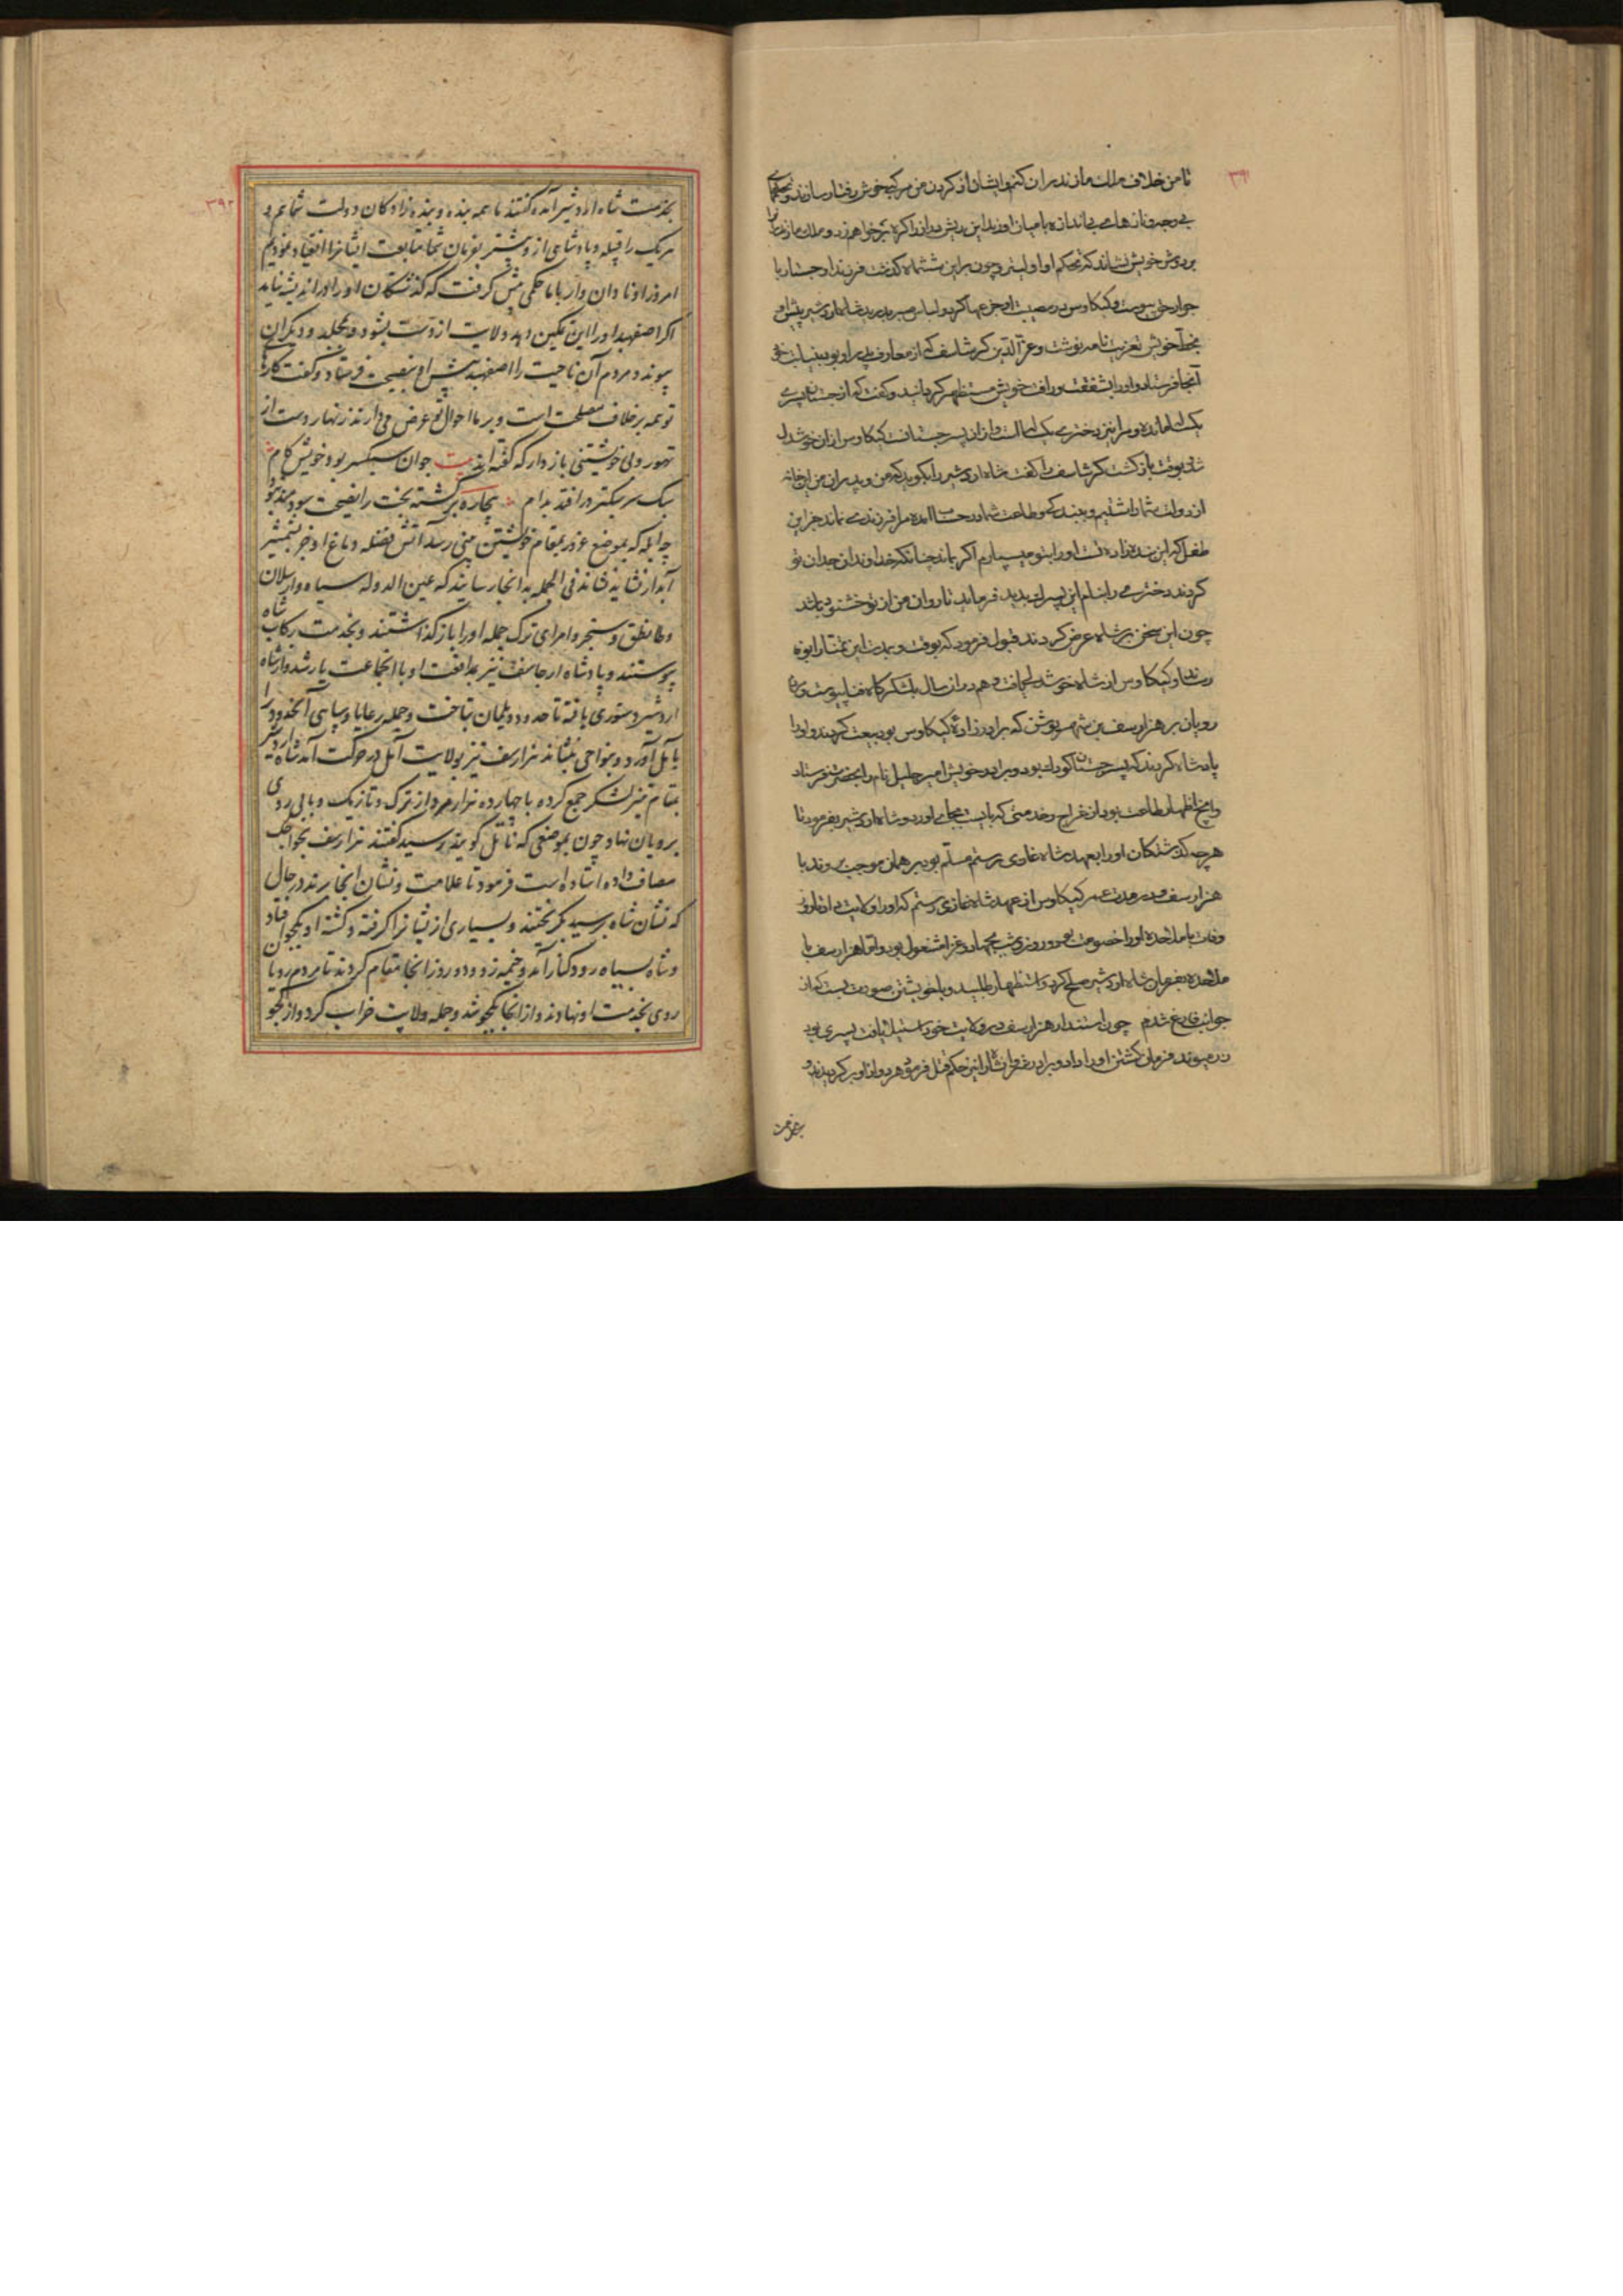 ۳۹۱
تا من خلاف ملك مازندران كنم و ایشان از كردن من مركب خوش رفتار سازند و تحكمهای
بی وجه و نازهای بی اندازه با میان اورند این ریش مرا نه اكره تیز خواهم زد و ملك مازندرانرا
بر دوش خویش نشاند كه تحكم او اولیتر و چون برین ششماه كذشت فرزند او جستان با
جوار حق پیوست و كیكاوس در مصیبت او جزعها كرد و لباس صبر بدرید شاه اردشیر پیش او
بخط خویش تعزیت نامه نوشت و عز الدین كرشاسف كه از معارف
آنجا فرستاد و او را بشفقت و رافت خویش مستظهر كردانید و كفت كه از جستان پسری
یك ساله مانده و مرا نیز دختری یك ساله است و از ان پسر جستانست كیكاوس ازان خوشدل
شد بوقت بازكشت كرشاسف را كفت شاه اردشیر را بكوید كه من و پدران من این خانه
از دولت شما داشتیم و بندكی و طاعت شما در حساب امده مرا فرزندی نماند جز این
طفل كه این بنده زاده تست او را بتو میسپارم اكر بماند چنانكه خداوندان جدان تو
كردند دختری را بنام این پسرك پدید فرماید تا روان من از تو خشنود باشد
چون این سخن بر شاه عرض كردند قبول فرمود كه بوقت و مدت این تمنا را بوفا
رساند و كیكاوس از شاه خوشدل یافت هم در ان سال بلشكركاه فنا پیوست و مردم
رویان بر هزارسف بن شهرنوش كه برادرزادۀ كیكاوس بود بیعت كردند و او را
پادشاه كردند كه پسر جستان كودك بود و برادر خویش امیر جلیل نام را بحضرت فرستاد
و آنچ اظهار طاعت بود از خراج و خدمتی كه بایست بجای اورد و شاه اردشیر بفرمود تا
هرچه كذشتكان او را بعهد شاه غازی رستم مسلم بود بر همان موجب بروند با
هزارسف و در مدت عمر كیكاوس از عهد شاه غازی رستم كه او را ولایت داد تا روز
وفات با ملاحده او را خصومت بود و روزی شب بجهاد و غزا مشغول بود و اما هزارسف با
ملاحده بفرمان شاه اردشیر صلح كرد و استظهار طلبید و با خویشتن صورت بست كه از
جوانب فارغ شدم چون استندار هزارسف در ولایت خود استیلا یافت پسری بود
زرمیوند فرمان كشتن او را داد و برادر خوانشان را نیز حكم قتل فرمود هر دو از او بر كردیدند و
بخدمت
۳۹۲
بخدمت شاه اردشیر آمده كفتند ما همه بنده و بنده زادكان دولت شما ایم و
هریك را قبیله و پادشاهی از و بیشتر بفرمان شما متابعت ایشانرا انقیاد نمودیم
امروز او نادان وار با ما حكمی پیش كرفت كه كذشتكان او را اندیشه نیاید
اكر اصفهبد او را این تمكین دهد ولایت از دست بشود و بملاحده و دیكران
پیوندد مردم آن ناحیت را اصفهبد پیش او بنصیحت فرستاد و كفت كارهای
تو همه برخلاف مصلحت است و بر ما احوال تو عرض می دارند زنهار دست از
تهور ولی خویشتنی باز دار كه كفته اند بیت جوان سبكسر بود خویش كام
سبك سر سبكتر در افتد بدام بیچاره بركشته بخت را نصیحت سود مند نبود
چه ابله كه بموضع غرور بمقام خویشتن بینی رسد آتش فضله دماغ او جز بشمشیر
آبدار نشاید نشاند فی الجمله بدانجا رسانید كه عین الدوله سیاه و ارسلان
و طایطق و سنجر و امرای ترك جمله او را باز كذاشتند و بخدمت ركاب شاه
پیوستند و پادشاه ارجاسف نیز بموافقت او با انجماعت یار شد و از شاه
اردشیر دستوری یافته تا حدود دیلمان بتاخت و جمله رعایا و سپاهی آنحدود را
بآمل آورد و بنواحی بنشاند هزارسف نیز بولایت آمل در حركت آمد شاه اردشیر
بمقام تمیز لشكر جمع كرده با چهارده هزار مرد از ترك و تازیك و بابلی روی
برویان نهاد چون بموضعی كه ناتل كویند رسید كفتند هزارسف بخواجك
مصاف داده استاده است فرمود تا علامت و نشان انجا برند در حال
كه نشان شاه برسید بكریختند و بسیاری از ایشانرا كرفته و كشته او بكجو افتاد
و شاه بسیاه رود كنار آمد و خیمه زد و دو روز انجا مقام كردند تا مردم رویان
روی بخدمت او نهادند و از انجا بكجو شد و جمله ولایت خراب كرد و از كجو